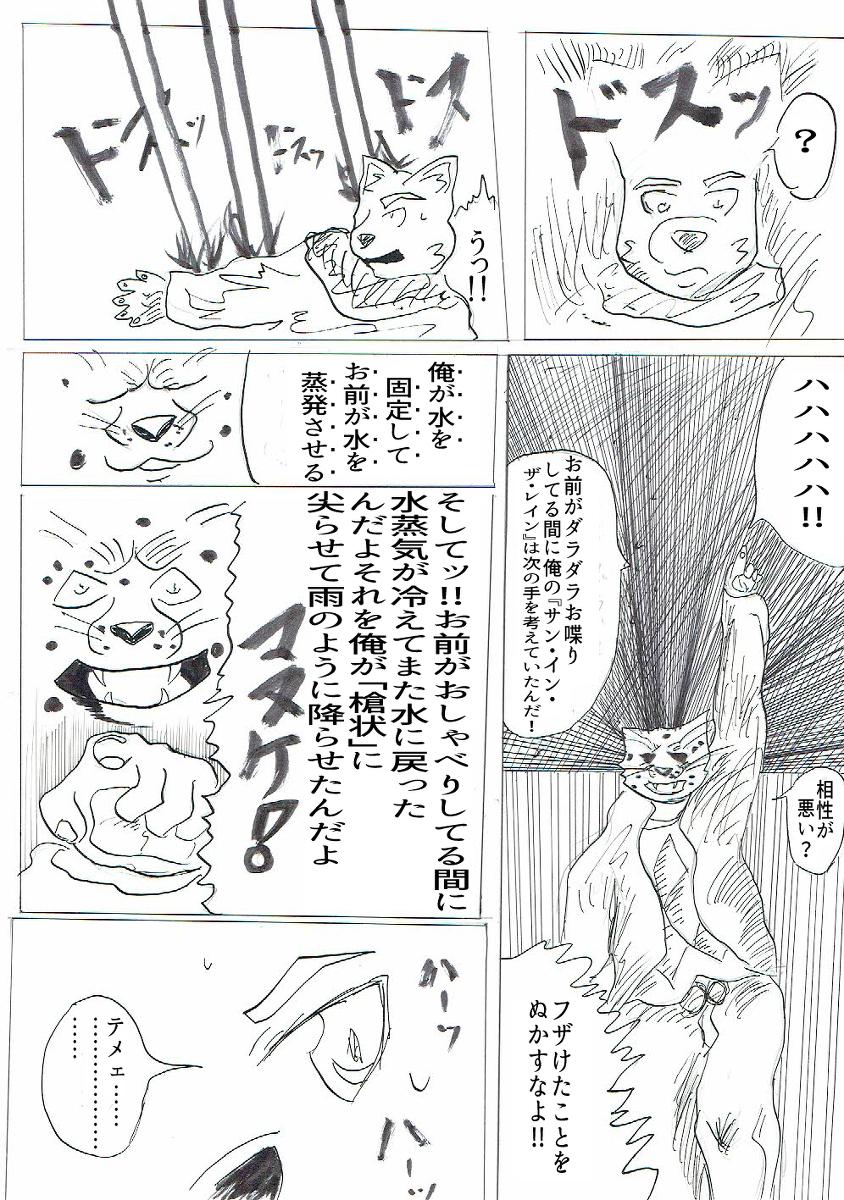 ？
ドスッ
うっ!!
ドス
ドスッ
ドスッ
ハハハハハ!!
お前がダラダラお喋り
してる間に俺の『サン・イン・
ザ・レイン』は次の手を考えていたんだ！
相性が
悪い？
フザけたことを
ぬかすなよ!!
俺が水を
固定して
お前が水を
蒸発させる
そしてッ!!お前がおしゃべりしてる間に
水蒸気が冷えてまた水に戻った
んだよそれを俺が「槍状」に
尖らせて雨のように降らせたんだよ
マヌケ！
ハーッ
ハーッ
テメェ……
……………
……